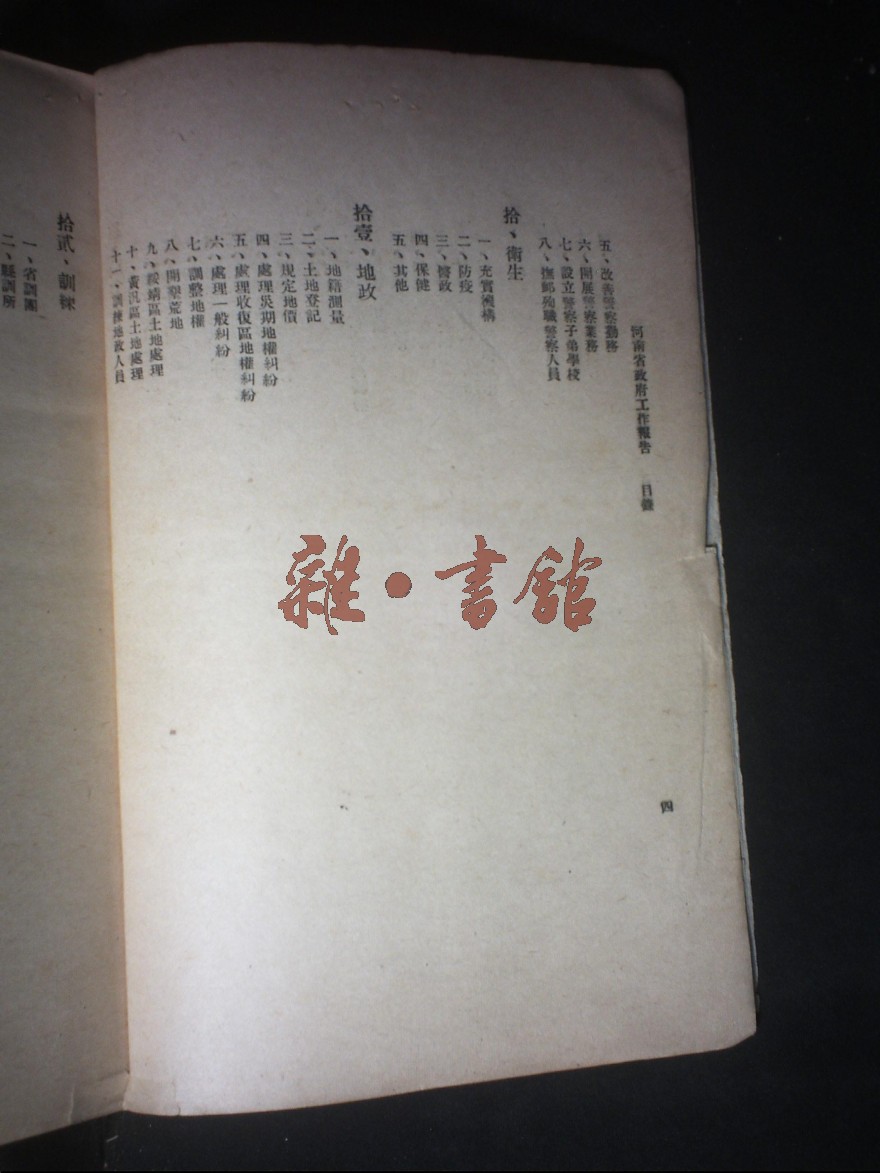 河南省政府工作報告　目錄
五、改善警察勤務
六、開展警察業務
七、設立警察子弟學校
八、撫卹殉職警察人員
拾、衛生
一、充實機構
二、防疫
三、醫政
四、保健
五、其他
拾壹、地政
一、地籍測量
二、土地登記
三、規定地價
四、處理災期地權糾紛
五、處理收復區地權糾紛
六、處理一般糾紛
七、調整地權
八、開墾荒地
九、綏靖區土地處理
十、黃汎區土地處理
十一、訓練地政人員
四
拾貳、訓練
一、省訓團
二、縣訓所
雜·書館